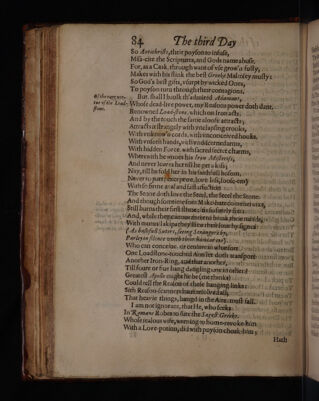 84 The third Day
So Antichrists, their poyson to infuse,
Miss-cite the Scriptures, and Gods name abuse,
For, as a Cask, through want of vse grow'n fusty,
Makes with his stink the best Greeke Malmsey musty:
So God's best gifts, vsurpt by wicked Ones,
To poyson turn through their contagions.
But, shall I houl th'admired Adamant,
Whose dead-live power, my Reasons power doth dant.
Renowned Load-stone, which on Iron acts,
And by the touch the same aloofe attracts;
Attracts it strangely with vnclasping crooks,
With vnknow'n cords, with vnconceived hooks,
With vnseen hands, with vndiscerned arms,
With hidden Force, with sacred secret charms,
Wherewith he woos his Iron Misteress,
And never leaves her till he get a kiss;
Nay, till he fold her in his faithfull bosom,
Never to part
With so firme zeal and fast affection
The Stone doth love the Steel, the Steel the Stone.
And though somtime som Make-bate come betwixt,
Still burns their first flame;
And, while they cannot meet to break their mindes,
With mutuall skips they shew their love by signes:
(As bashfull Sutors, seeing Strangers by,
Parley in silence with their hand or eye).
Who can conceive, or censure in what sort
One Loadstone-touched Annlet doth transport
Another Iron-Ring, and that another,
Till foure or five hang dangling one in other?
Greatest Apollo might he be (me thinks)
Could tell the Reason of these hanging links:
Sith Reason-scanners have resolved all,
That heavie things, hangd in the Aire, must fall.
I am not ignorant, that He, who seeks
In Romane Robes to sute the Sagest Greeks,
Whose iealous wife, weening to home-revoke him
With a Love-potion, did with poyson choak him;
Hath